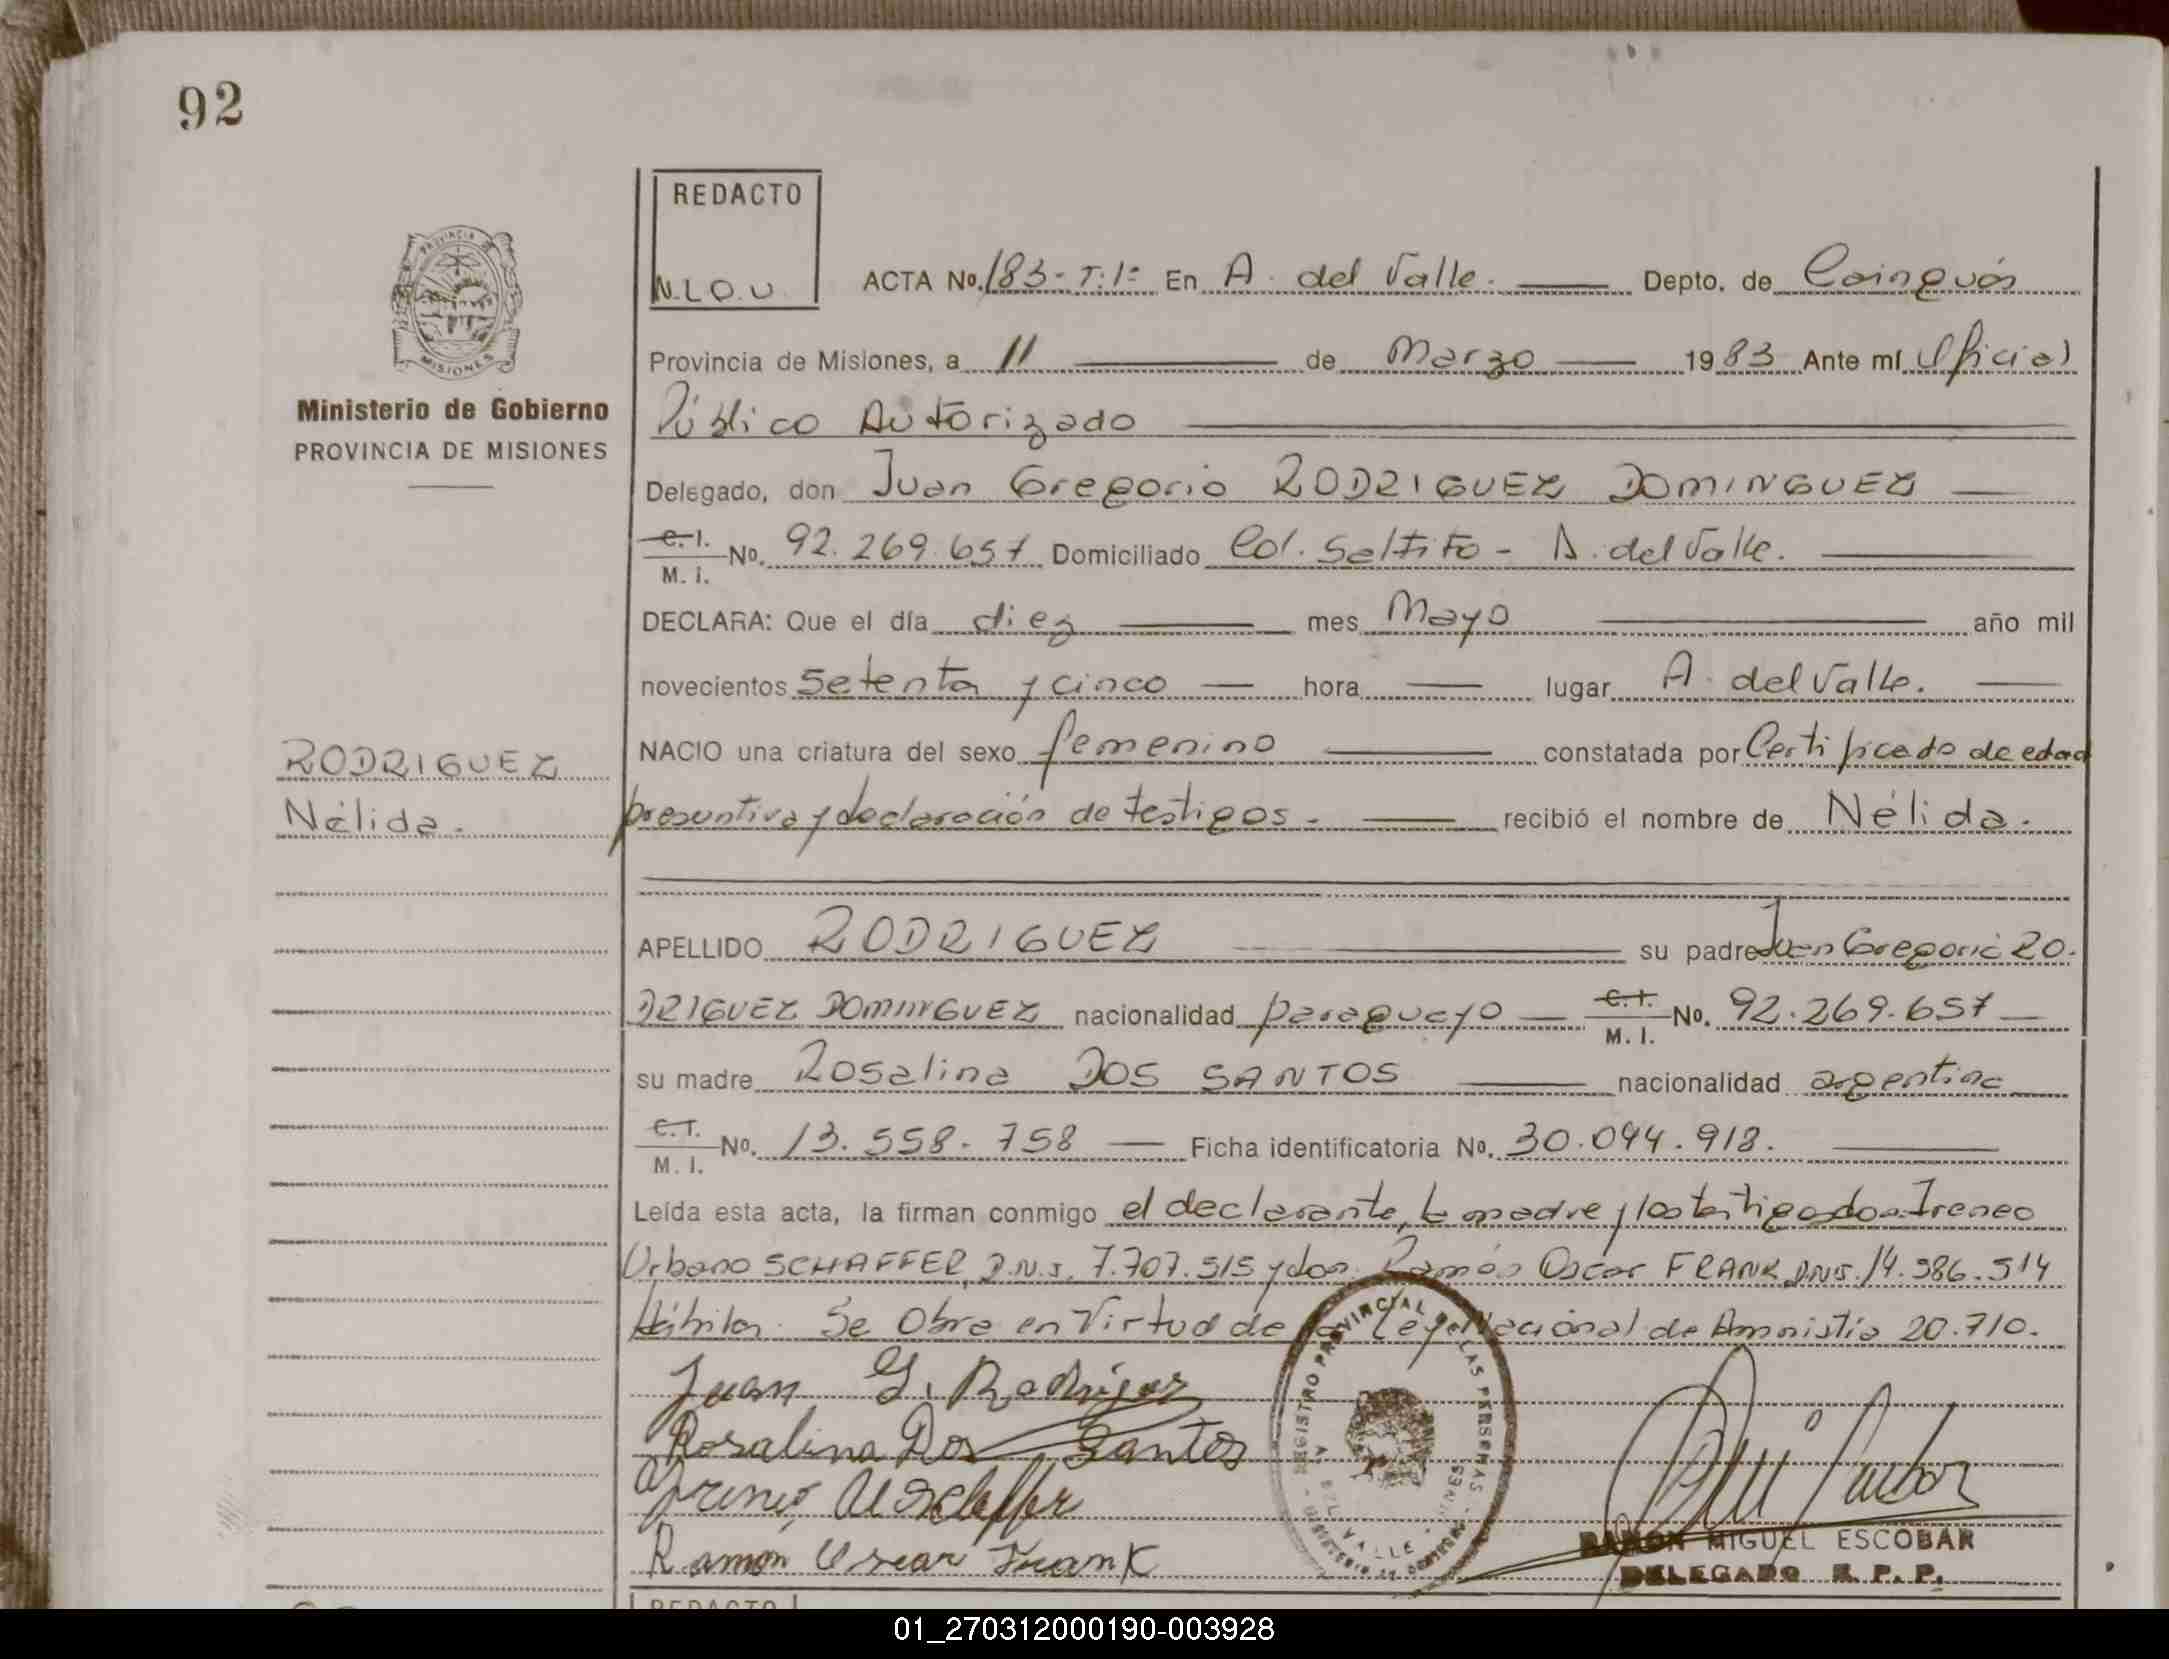 92
REDACTO
N.L.O.U.
PROVINCIA
MISIONES
Ministerio de Gobierno
PROVINCIA DE MISIONES
RODRIGUEZ
Nélida.
ACTA No. 183-T:1º En A. del Valle. Depto. de Cainguás
Provincia de Misiones, a 11 de Marzo 1983 Ante mí Oficial
Público Autorizado
Delegado, don Juan Gregorio RODRIGUEZ DOMINGUEZ
C. I. M. I. No. 92.269.657 Domiciliado Col. Saltito - A. del Valle.
DECLARA: Que el día diez mes Mayo año mil
novecientos Setenta y cinco hora lugar A. del Valle.
NACIO una criatura del sexo femenino constatada por Certificado de edad
presuntiva y declaración de testigos. recibió el nombre de Nélida.
APELLIDO RODRIGUEZ su padre Juan Gregorio RO-
DRIGUEZ DOMINGUEZ nacionalidad paraguayo C. I. M. I. No. 92.269.657
su madre Rosalina DOS SANTOS nacionalidad argentina
C. I. M. I. No. 13.558.758 Ficha identificatoria No. 30.094.918.
Leída esta acta, la firman conmigo el declarante, la madre y los testigos don Ireneo
Urbano SCHAFFER, D.N.I. 7.707.515 y don Ramón Oscar FRANK D.N.I. 14.586.514
Hábiles. Se Obra en Virtud de la Ley Nacional de Amnistía 20.710.
Juan G. Rodriguez
Rosalina Dos Santos
Ireneo U Schaffer
Ramón Oscar Frank
REGISTRO PROVINCIAL DE LAS PERSONAS
DEL VALLE
MISIONES
RAMON MIGUEL ESCOBAR
DELEGADO R. P. P.
REDACTO
01_270312000190-003928